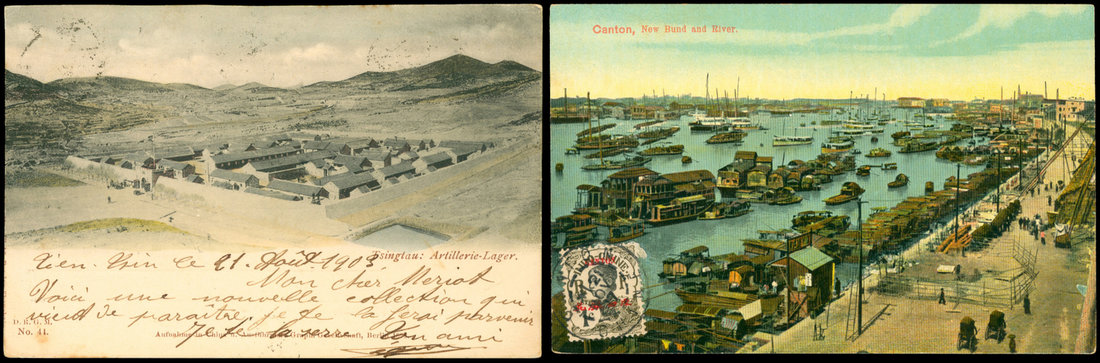 Tsingtau: Artillerie-Lager.
Tien-Tsin le 21 Août 1903
Mon cher Meriot
Voici une nouvelle collection qui
vient de paraître je te la ferai parvenir
D. R. G. M.
No. 41.
Je te la serre Ton ami
Canton, New Bund and River.